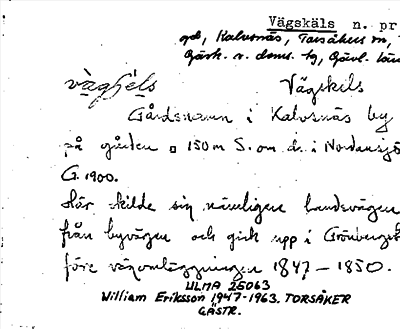 Vägskäls n. pr
gd, Kalvsnäs, Torsåkers sn,
Gästr. ö. doms. tg, Gävl. län
Vägskels
Gårdsnamn i Kalvsnäs by
på gården □ 150 m S. om d. i Nordansjö
G. 1900.
Här skilde sig nämligen landsvägen
från byvägen och gick upp i Grönberget
före vägomläggningen 1847–1850.
ULMA 25063
William Eriksson 1947-1963. TORSÅKER
GÄSTR.